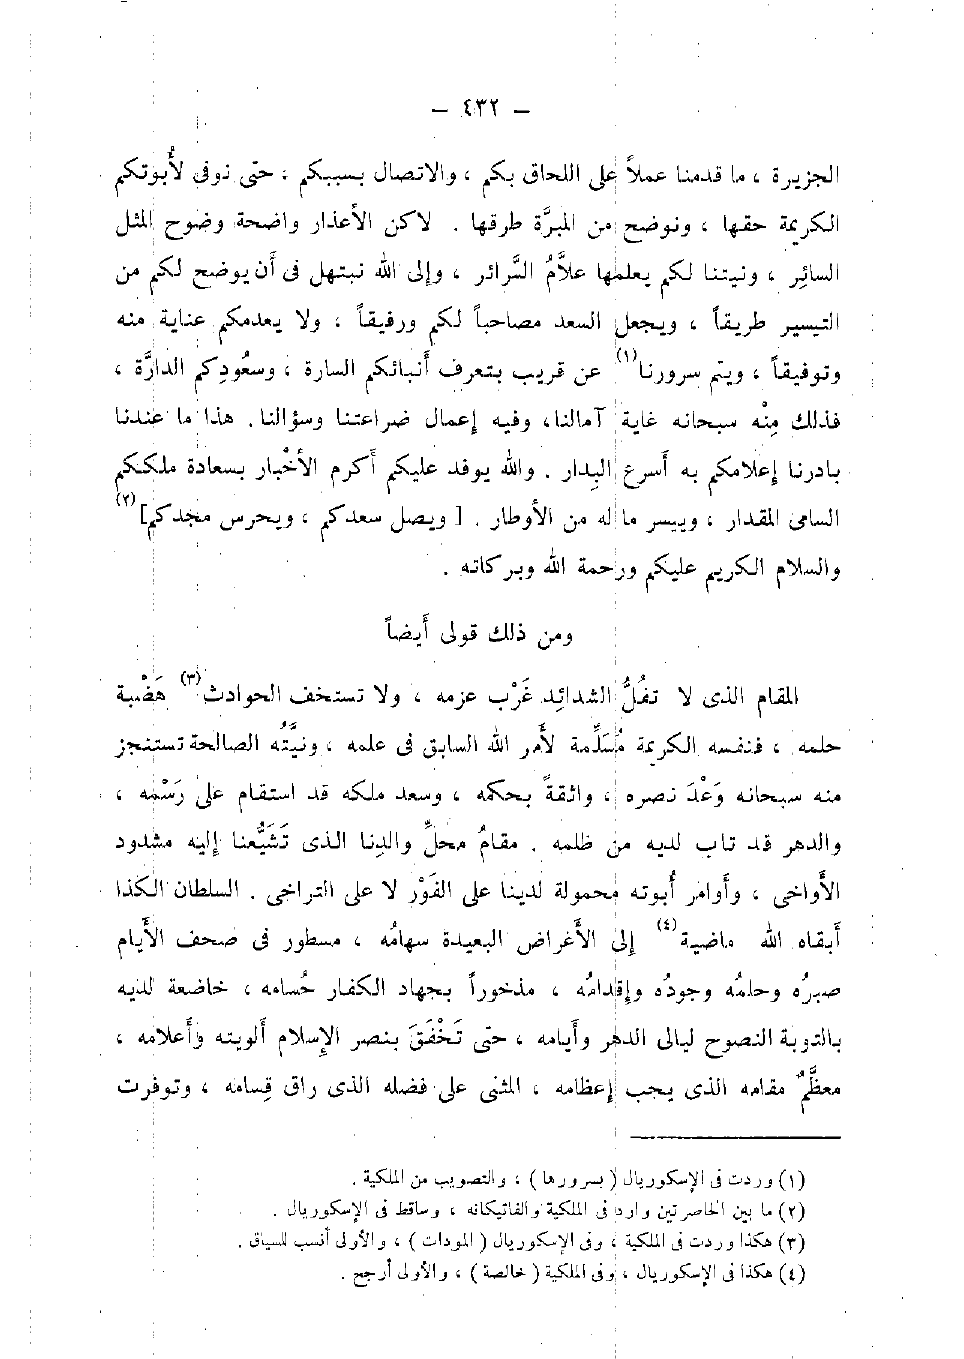 — ٤٣٢ —
الجزيرة ، ما قدمنا عملاً على اللحاق بكم ، والاتصال بسببكم ، حتى نوفى لأُبوتكم
الكريمة حقها ، ونوضح من المبرَّة طرقها . لاكن الأعذار واضحة وضوح المثل
السائِر ، ونيتنا لكم يعلمها علاَّمُ السَّرائر ، وإلى الله نبتهل فى أن يوضح لكم من
التيسير طريقاً ، ويجعل السعد مصاحباً لكم ورفيقاً ، ولا يعدمكم عناية منه
وتوفيقاً ، ويتم سرورنا(١) عن قريب بتعرف أنبائكم السارة ، وسعُودِكم الدارَّة ،
فذلك مِنْه سبحانه غاية آمالنا، وفيه إعمال ضراعتنا وسؤالنا. هذا ما عندنا
بادرنا إعلامكم به أسرع البِدار . والله يوفد عليكم أكرم الأخْبار بسعادة ملككم
السامى المقدار ، وييسر ماله من الأوطار . [ ويصل سعدكم ، ويحرس مجدكم](٢)
والسلام الكريم عليكم ورحمة الله وبركاته .
ومن ذلك قولى أيضاً
المقام الذى لا تفُلُّ الشدائد غَرْب عزمه ، ولا تستخف الحوادث(٣) هَضْبة
حلمه ، فنفسه الكريمة مُسَلِّمة لأَمر الله السابق فى علمه ، ونيَّتُه الصالحة تستنجز
منه سبحانه وَعْدَ نصره ، واثقةً بحكمه ، وسعد ملكه قد استقام على رَسْمه ،
والدهر قد تاب لديه من ظلمه . مقامُ محلِّ والدِنا الذى تَشَيُّعنا إليه مشدود
الأَواخى ، وأَوامر أُبوته محمولة لدينا على الفَوْر لا على التراخى . السلطان الكذا
أبقاه الله ماضية(٤) إلى الأغراض البعيدة سهامُه ، مسطور فى صحف الأيام
صبرُه وحلمُه وجودُه وإقدامُه ، مذخوراً بجهاد الكفار حُسامه ، خاضعة لديه
بالتوبة النصوح ليالى الدهر وأيامه ، حتى تَخْفَقَ بنصر الإسلام ألويته وأعلامه ،
معظَّمُ مقامه الذى يجب إعظامه ، المثنى على فضله الذى راق قِسامه ، وتوفرت
(١) وردت فى الإسكوريال ( بسرورها ) ، والتصويب من الملكية .
(٢) ما بين الخاصرتين وارد فى الملكية والفاتيكانه ، وساقط فى الإسكوريال .
(٣) هكذا وردت فى الملكية ، وفى الإسكوريال ( المودات ) ، والأولى أنسب للسياق .
(٤) هكذا فى الإسكوريال ، وفى الملكية ( خالصة ) ، والأولى أرجح .